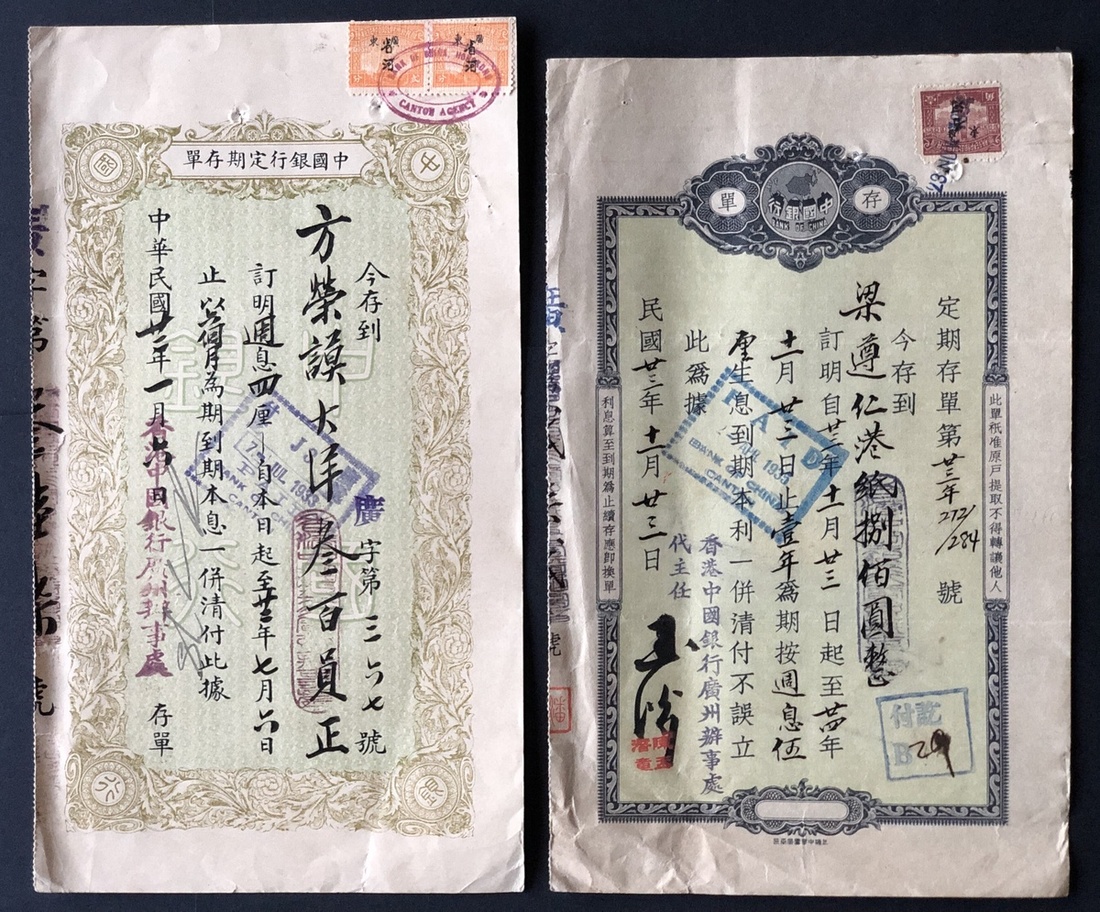 省河
廣東
省河
廣東
BANK OF CHINA HONGKONG
CANTON AGENCY
中國銀行定期存單
中
國
銀
行
今存到
廣字第三六七號
方榮謨大洋叁百員正
訂明週息四厘自本日起至廿二年七月六日
止以六個月為期到期本息一併清付此據
中華民國廿二年一月六日
存單
香港中國銀行廣州辦事處
BANK OF CHINA
CANTON
存單
中國銀行
BANK OF CHINA
定期存單第廿三年2121/1284號
今存到
梁遵仁港紙捌佰圓整
訂明自廿三年十一月廿三日起至廿四年
十一月廿三日止壹年為期按週息伍
厘生息到期本利一併清付不誤立
此為據
香港中國銀行廣州辦事處
代主任
民國廿三年十一月廿三日
此單祇准原戶提取不得轉讓他人
利息算至到期為止續存應即換單
PAID
BANK OF CHINA
CANTON
付訖
B 29